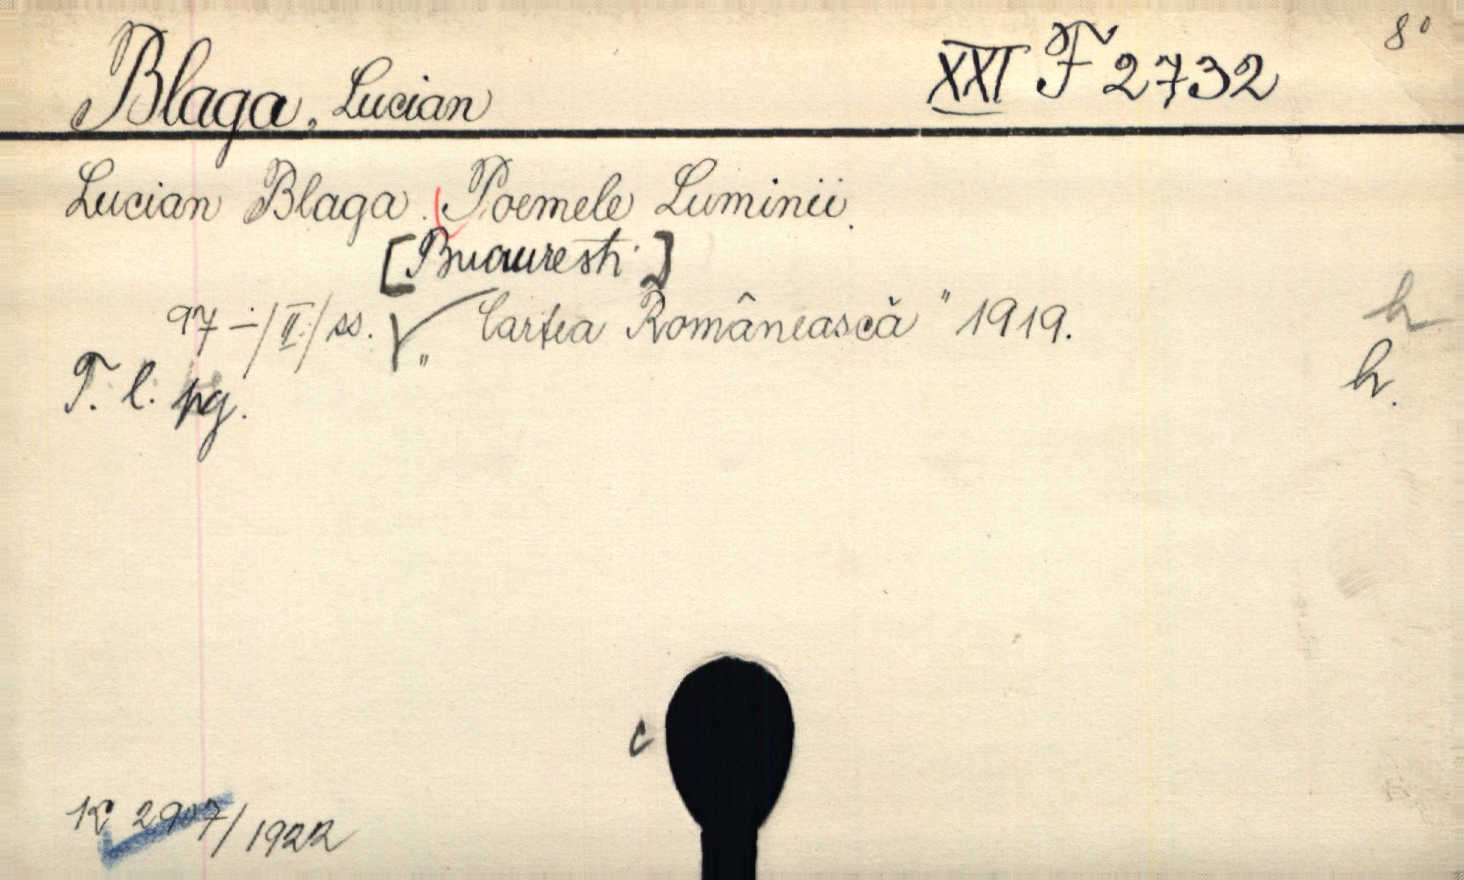 Blaga, Lucian XXI F 2732 8°
Lucian Blaga. Poemele Luminii.
[Bucuresti]
97 - /II/ ss. „Cartea Românească" 1919. h
T. l. pg. h.
c
K 2907/1922